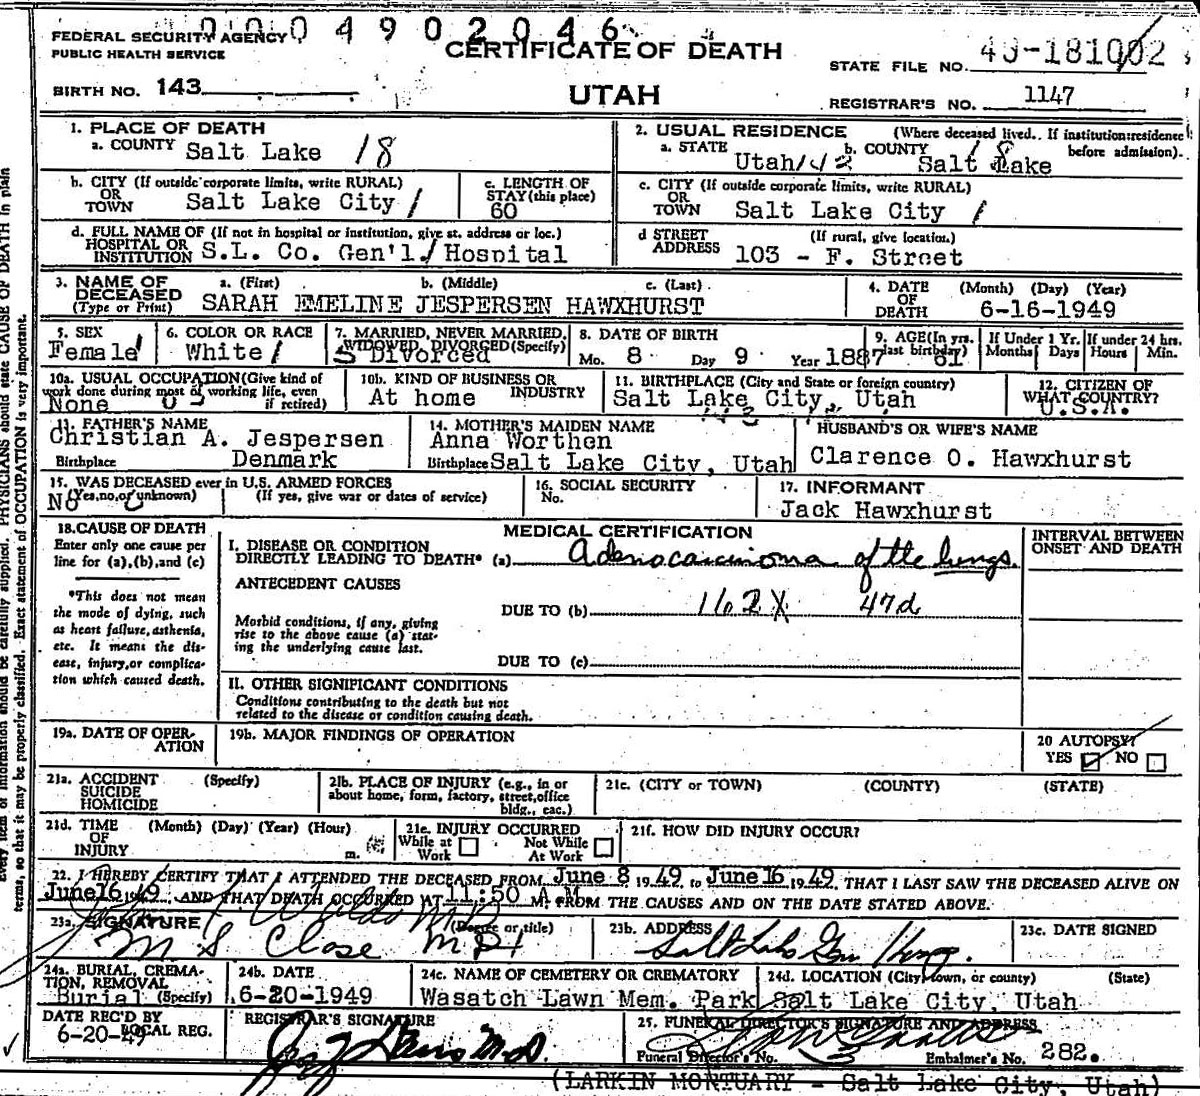 0004902046
FEDERAL SECURITY AGENCY
PUBLIC HEALTH SERVICE
CERTIFICATE OF DEATH
STATE FILE NO. 49-181002
BIRTH NO. 143
UTAH
REGISTRAR'S NO. 1147
1. PLACE OF DEATH
a. COUNTY Salt Lake 18
2. USUAL RESIDENCE (Where deceased lived. If institution: residence before admission).
a. STATE Utah b. COUNTY Salt Lake
b. CITY (If outside corporate limits, write RURAL)
OR TOWN Salt Lake City
c. LENGTH OF STAY (this place) 60
c. CITY (If outside corporate limits, write RURAL)
OR TOWN Salt Lake City
d. FULL NAME OF (If not in hospital or institution, give st. address or loc.)
HOSPITAL OR INSTITUTION S.L. Co. Gen'l Hospital
d STREET ADDRESS (If rural, give location.)
103 - F. Street
3. NAME OF DECEASED (Type or Print) a. (First) b. (Middle) c. (Last)
SARAH EMELINE JESPERSEN HAWXHURST
4. DATE OF DEATH (Month) (Day) (Year)
6-16-1949
5. SEX Female
6. COLOR OR RACE White
7. MARRIED, NEVER MARRIED, WIDOWED, DIVORCED (Specify)
Divorced
8. DATE OF BIRTH
Mo. 8 Day 9 Year 1887
9. AGE (In yrs. last birthday) 61
If Under 1 Yr. Months Days
If under 24 hrs. Hours Min.
10a. USUAL OCCUPATION (Give kind of work done during most of working life, even if retired)
None
10b. KIND OF BUSINESS OR INDUSTRY
At home
11. BIRTHPLACE (City and State or foreign country)
Salt Lake City, Utah
12. CITIZEN OF WHAT COUNTRY?
U.S.A.
13. FATHER'S NAME
Christian A. Jespersen
Birthplace Denmark
14. MOTHER'S MAIDEN NAME
Anna Worthen
Birthplace Salt Lake City, Utah
HUSBAND'S OR WIFE'S NAME
Clarence O. Hawxhurst
15. WAS DECEASED ever in U.S. ARMED FORCES
(Yes, no, or unknown) (If yes, give war or dates of service)
No
16. SOCIAL SECURITY No.
17. INFORMANT
Jack Hawxhurst
18. CAUSE OF DEATH
Enter only one cause per line for (a), (b), and (c)
*This does not mean the mode of dying, such as heart failure, asthenia, etc. It means the disease, injury, or complication which caused death.
MEDICAL CERTIFICATION
INTERVAL BETWEEN ONSET AND DEATH
I. DISEASE OR CONDITION
DIRECTLY LEADING TO DEATH* (a) Adenocarcinoma of the lungs.
ANTECEDENT CAUSES
DUE TO (b) 162X 47d
Morbid conditions, if any, giving rise to the above cause (a) stating the underlying cause last.
DUE TO (c)
II. OTHER SIGNIFICANT CONDITIONS
Conditions contributing to the death but not related to the disease or condition causing death.
19a. DATE OF OPERATION
19b. MAJOR FINDINGS OF OPERATION
20 AUTOPSY?
YES NO
21a. ACCIDENT SUICIDE HOMICIDE (Specify)
21b. PLACE OF INJURY (e.g., in or about home, form, factory, street, office bldg., eac.)
21c. (CITY or TOWN) (COUNTY) (STATE)
21d. TIME OF INJURY (Month) (Day) (Year) (Hour) m.
21e. INJURY OCCURRED
While at Work Not While At Work
21f. HOW DID INJURY OCCUR?
22. I HEREBY CERTIFY THAT I ATTENDED THE DECEASED FROM June 8, 1949 to June 16, 1949, THAT I LAST SAW THE DECEASED ALIVE ON
June 16 1949, AND THAT DEATH OCCURRED AT 11:50 A M. FROM THE CAUSES AND ON THE DATE STATED ABOVE.
23a. SIGNATURE (Degree or title)
M S Close MD
23b. ADDRESS
Salt Lake Gen Hosp.
23c. DATE SIGNED
24a. BURIAL, CREMATION, REMOVAL (Specify)
Burial
24b. DATE
6-20-1949
24c. NAME OF CEMETERY OR CREMATORY
Wasatch Lawn Mem. Park
24d. LOCATION (City, town, or county) (State)
Salt Lake City, Utah
DATE REC'D BY LOCAL REG.
6-20-49
REGISTRAR'S SIGNATURE
25. FUNERAL DIRECTOR'S SIGNATURE AND ADDRESS
Funeral Director's No. Embalmer's No. 282.
(LARKIN MORTUARY - Salt Lake City, Utah)
Every item of information should be carefully supplied. PHYSICIANS should state CAUSE OF DEATH in plain
terms, so that it may be properly classified. Exact statement of OCCUPATION is very important.